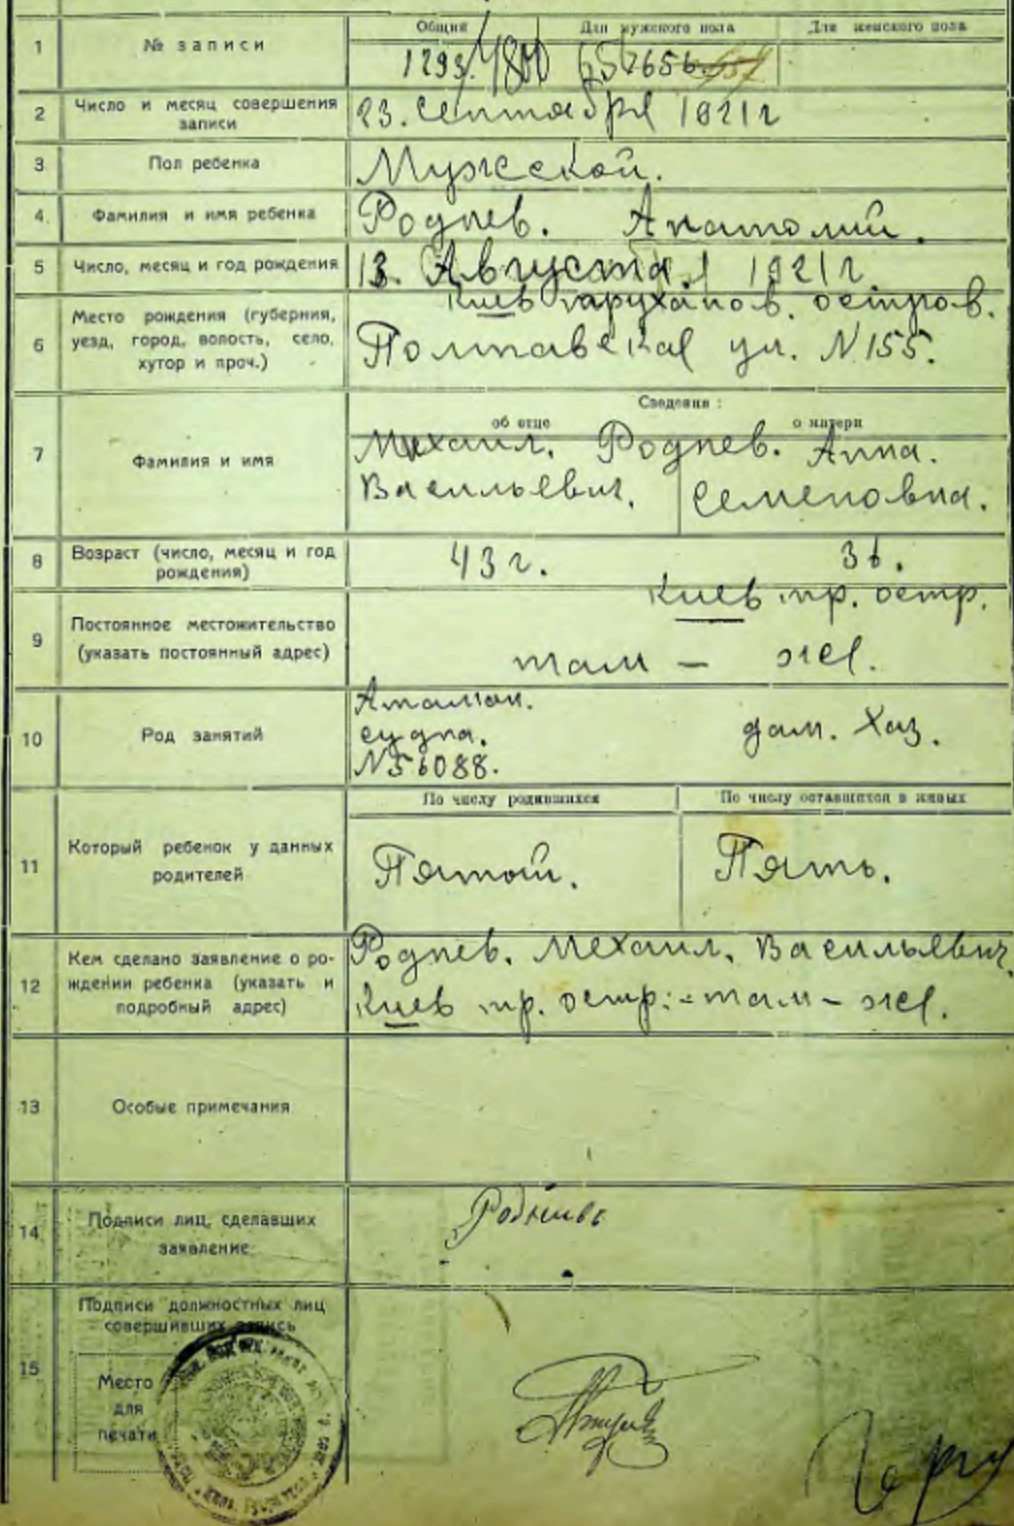 1
№ записи
Общий
Для мужского пола
Для женского пола
1293/1800
656
2
Число и месяц совершения
записи
23. Сентября 1921 г
3
Пол ребенка
Мужеской.
4.
Фамилия и имя ребенка
Роднев. Анатолий.
5
Число, месяц и год рождения
13. Августа 1921 г.
6
Место рождения (губерния,
уезд, город, волость, село,
хутор и проч.)
Киев труханов. остров.
Полтавская ул. N 155.
7
Фамилия и имя
Сведения:
об отце
о матери
Михаил. Роднев. Анна.
Васильевич. Семеновна.
8
Возраст (число, месяц и год
рождения)
43 г. 36.
9
Постоянное местожительство
(указать постоянный адрес)
Киев тр. остр.
там – же.
10
Род занятий
Атаман.
судна. дам. Хаз.
N56088.
11
Который ребенок у данных
родителей
По числу родившихся
По числу оставшихся в живых
Пятой.
Пять.
12
Кем сделано заявление о ро-
ждении ребенка (указать и
подробный адрес)
Роднев. Михаил. Васильевич.
Киев тр. остр:-там-же.
13
Особые примечания
14
Подписи лиц, сделавших
заявление
15
Подписи должностных лиц
совершивших запись
Место
для
печати